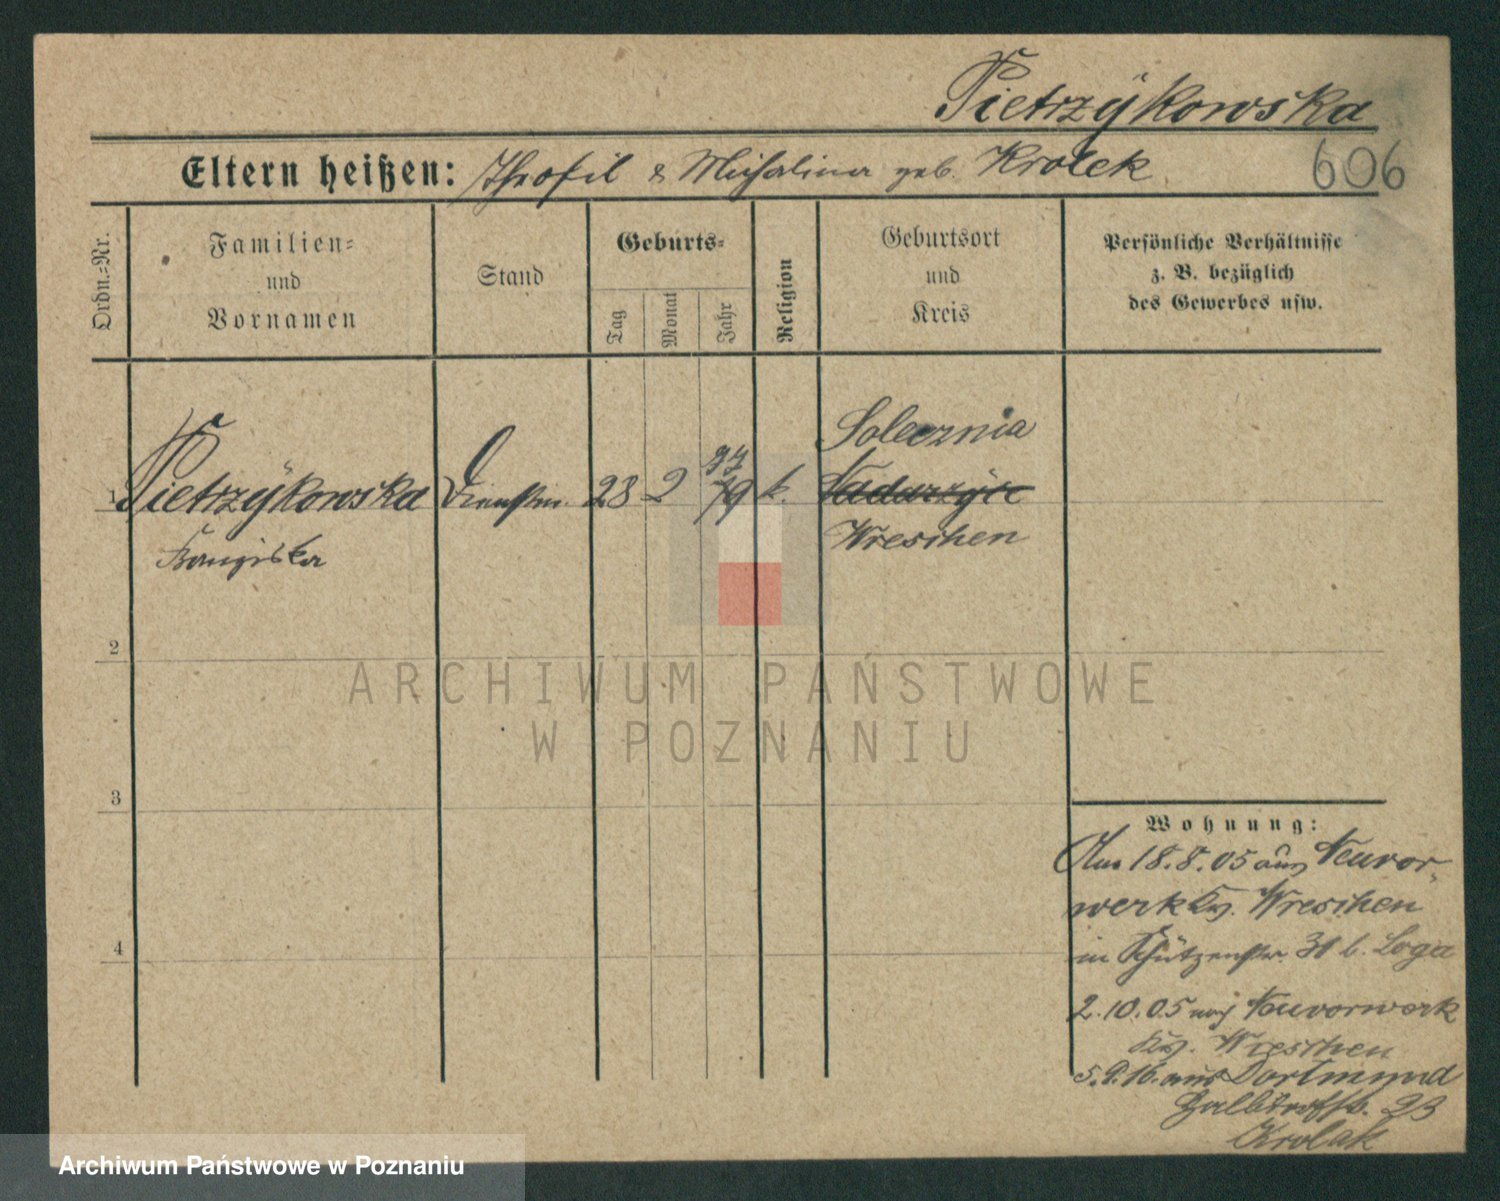 Pietrzÿkowska
Eltern heißen: Theofil & Michalina geb. Krolek
606
Ordn.-Nr.
Familien- und Vornamen
Stand
Geburts-
Tag
Monat
Jahr
Religion
Geburtsort und Kreis
Persönliche Verhältnisse
z. B. bezüglich
des Gewerbes usw.
Solecznia
87
1 Pietrzÿkowska Dienstm. 28 2 79 k. Nadarzÿce
Wreschen
Franziska
2
3
4
ARCHIWUM PAŃSTWOWE
W POZNANIU
Wohnung:
Am 18.8.05 aus Neuvor-
werk Kr. Wreschen
in Schützenstr. 31 b. Loga
2.10.05 nach Neuvorwerk
Kr. Wreschen
5.9.16. aus Dortmund
23
Krolak
Archiwum Państwowe w Poznaniu